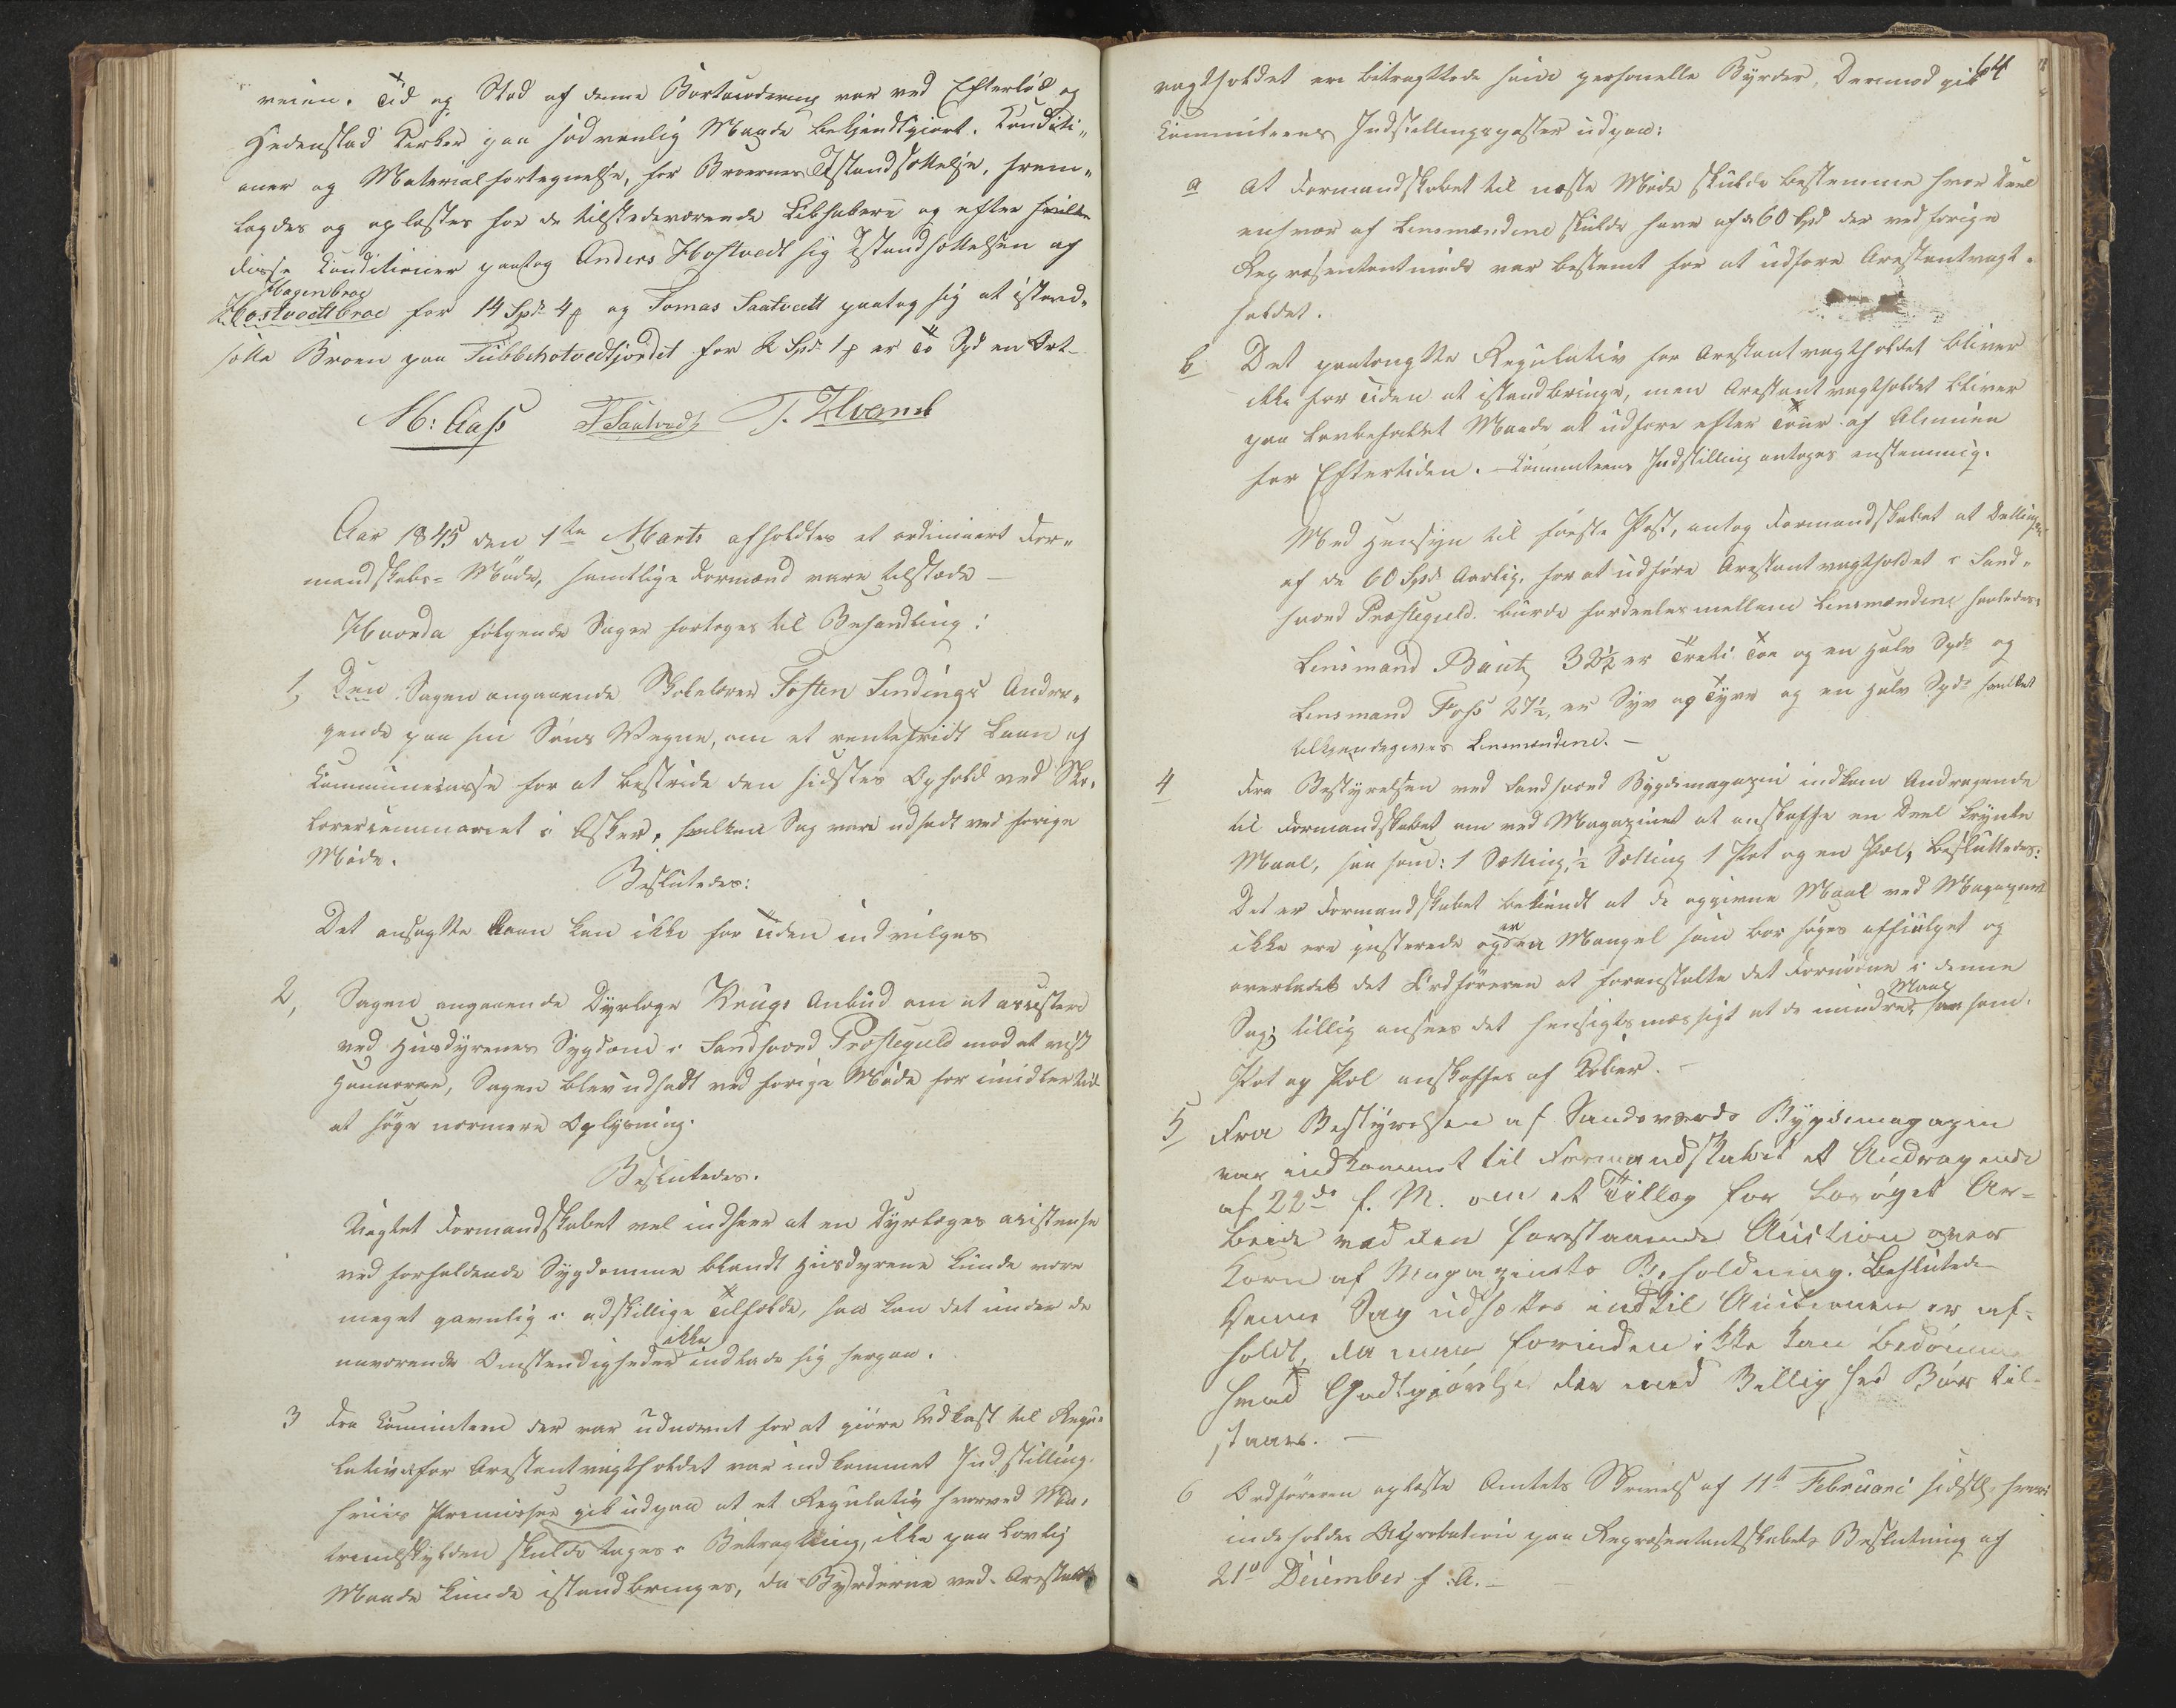 veien. Tid og Sted af denne Bortaccordering var ved Efterløb og
Hedenstad Kirker paa sædvanlig Maade bekjendtgjort. Conditi„
oner og Materialfortegnelse, for Broernes Istandsættelse, frem„
lagdes og oplæstes for de tilstedeværende Liebhabere og efter hvilke
disse Conditioner paatog Anders Hostvedt sig Istandsættelsen af
Hagenbroe
Hostvedtbroe for 14 Spd. 4 ₰ og Tomas Saatvedt paatog sig at istand„
sætte Broen paa Tubbehotvedtjordet for 2 Spd. 1 ₰ er To Spd en Ort
M: Aass T Saatvedt T. Hvamb
Aar 1845 den 1te Marts afholdtes et ordinairt For„
mandskabs-Møde, samtlige Formænd vare tilstæde —
Hvorda følgende Sager foretoges til Behandling:
1, Den Sagen angaaende Skolelærer Tosten Sindings Andra„
gende paa sin Søns Vegne, om et rentefridt Laan af
Communecasse for at bestride den sidstes Ophold ved Sko„
lærerseminariet i Asker, hvilken Sag vare udsadt ved forige
Møde.
Besluttedes:
Det ansøgte Laan kan ikke for Tiden indvilges
2, Sagen angaaende Dyrlæge Krugs Anbud om at assistere
ved Husdyrenes Sygdom i Sandsværd Præstegield mod et vist
Honorere, Sagen blev udsadt ved forige Møde for imidlertid
at søge nærmere Oplysning.
Besluttedes.
Uagtet Formandskabet vel indseer at en Dyrlæges asistense
ved forfaldende Sygdomme blandt Husdyrene kunde være
meget gavnlig i adskillige Tilfælde, saa kan det under de
ikke
nuværende Omstændigheder indlade sig herpaa.
3 Fra Commiteen der var udnævnt for at giøre Udkast til Regu„
lativ for Arestantvagtholdet var indkommet Indstilling.
hvis Premisser gik udpaa at et Regulativ hvorved Ma„
trulskylden skulde tages i Betragtning, ikke paa Lovlig
Maade kunde istandbringes, da Byrderne ved Arestant
64
vagtholdet ere betragttede som personelle Byrder, Derimod gik
Commiteens Indstillingsposter udpaa:
a At Formandskabet til næste Møde skulde bestemme hvor Deel
enhver af Lensmændene skulde have af de 60 Spd der ved forige
Repræsentantmøde var bestemt for at udføre Arestantvagt„
holdet.
b Det paatængkte Regulativ for Arestantvagtholdet bliver
ikke for Tiden at istandbringe, men Arestantvagtholdet bliver
paa Lovbefalet Maade at udføre efter Tour af Almuen
for Eftertiden. — Commiteens Indstilling antoges enstemmig.
Med Hensyn til første Post, antog Formandskabet at Delingen
af de 60 Spd. Aarlig, for at udføre Arestantvagtholdet i Sand„
sværd Præstegield. burde fordeeles mellem Lensmændene saaledes:
Lensmand Bautz 32½ er Treti Toe og en halv Spd. og
Lensmand Foss 27½, er Syv og Tyve og en halv Spd. hvilket
tilkjendegives Lensmændene. —
4 Fra Bestyrelsen ved Sandsværd Bygdemagazin indkom Andragende
til Formandskabet om ved Magazinet at anskaffe en Deel krynte
Maal, saa som: 1 Sætting, ½ Sætting 1 Pot og en Pæl, Besluttedes:
Det er Formandskabet bekiendt at de opgivne Maal ved Magazinet
er
ikke ere justerede og en Mangel som bør søges afhiulpet og
overlades det Ordføreren at foranstalte det Fornødne i denne
Maal
Sag; tillig ansees det hensigtsmæssigt at de mindre saa som.
Pot og Pæl anskaffes af Kober. —
5 Fra Bestyrelsen af Sandsværds Bygdemagazin
var indkommet til Formandskabet et Andragende
af 22de f. M. om et Tillæg for forøget Ar-
beide ved den forestaaende Auction over
Korn af Magazinets Beholdning. Besluttede
Denne Sag udsættes indtil Auctionen er af-
holdt, da man forinden ikke kan bedømme
hvad Godtgjørelse der med Billighed Bør til-
staaes. —
6 Ordføreren oplæste Amtets Skrivels af 11te Februari sidstl. hvori
indeholdes Approbation paa Repræsentantskabets Beslutning af
21de December f. A. —